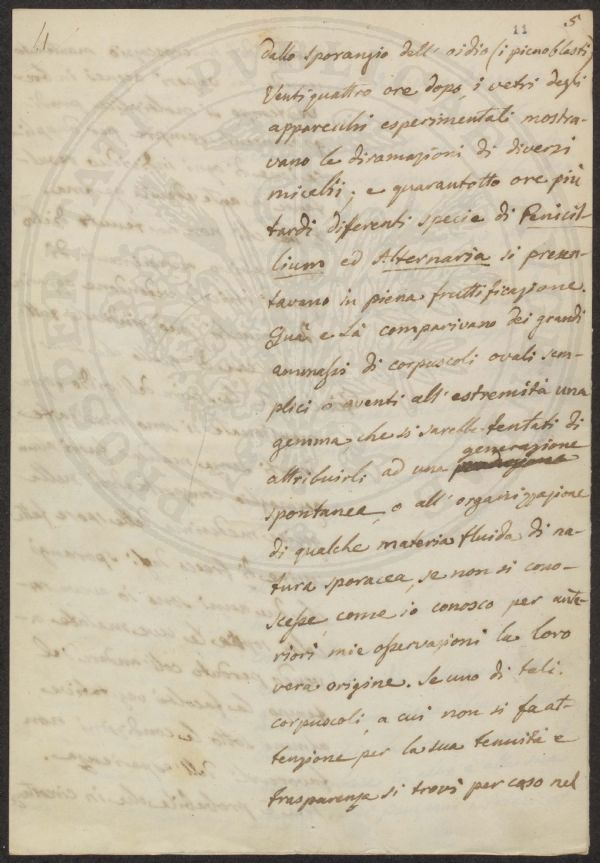 11
5
dallo sporangio dell' oidio (i picnoblasti)
Ventiquattro ore dopo i vetri degli
apparecchi esperimentali mostra-
vano le diramazioni di diversi
micelii; e quarantotto ore più
tardi diferenti specie di Penicil-
lium ed Alternaria si presen-
tavano in piena fruttificazione.
Quà e là comparivano dei grandi
ammassi di corpuscoli ovali sem-
plici o aventi all' estremità una
gemma che si sarebbe tentati di
generazione
attribuirli ad una
spontanea, o all' organizzazione
di qualche materia fluida di na-
tura sporacea, se non si cono-
scesse, come io conosco per ante-
riori mie osservazioni la loro
vera origine. Se uno di tali
corpuscoli, a cui non si fa at-
tenzione per la sua tenuità e
trasparenza si trovi per caso nel